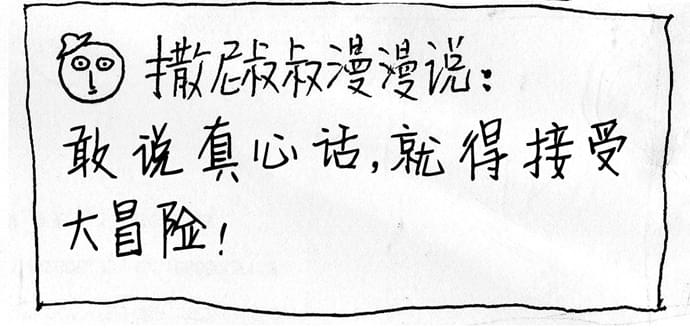 撒尼叔叔漫漫说：
敢说真心话，就得接受
大冒险！